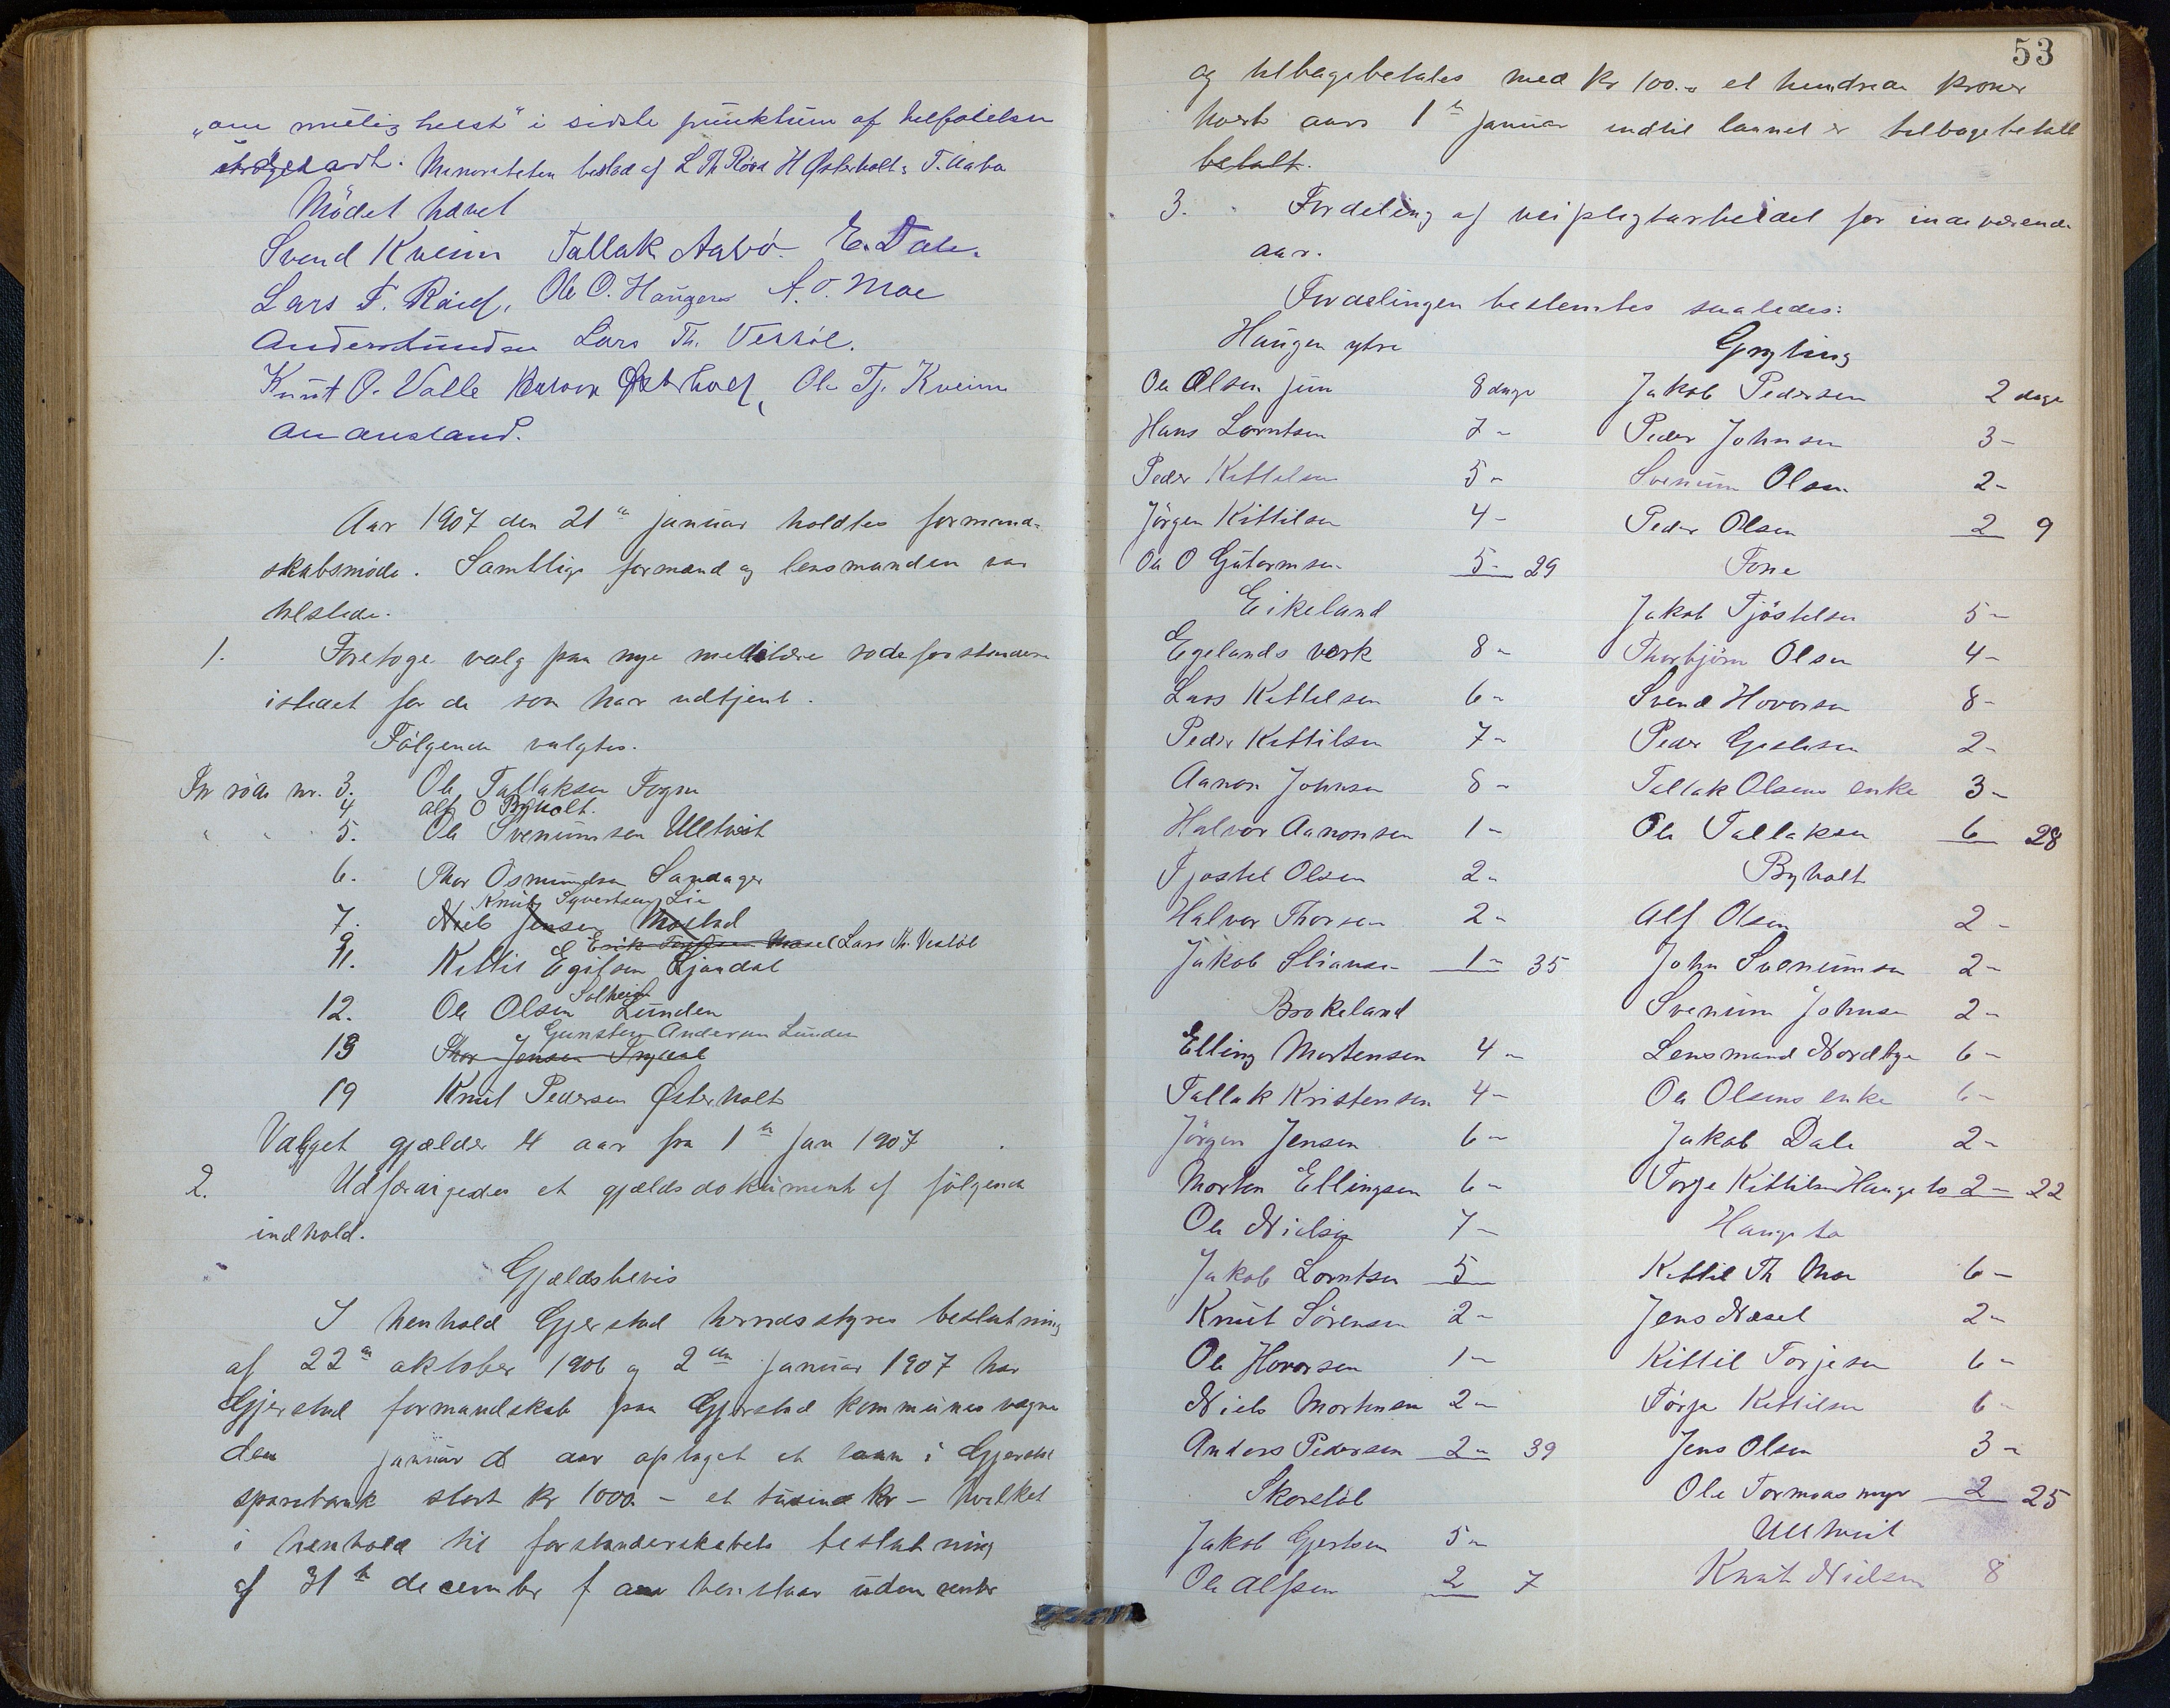 „om mulig helst" i sidste punktum af tilføielsen
strøget. Minoriteten bestod af L Th Röed H Østerholt & T. Aabø
Mödet hævet
Svend Kveim Tallak Aabø E. Dale.
Lars T. Röed, Ole O. Haugen A. O. Moe
Lars Th. Vestöl.
Knut O. Valle Halvor Østerholt, Ole Tj. Kveim
Aanansland.
Aar 1907 den 21de januar holdtes formand-
skabsmöde. Samtlige formænd og lensmanden var
tilstede.
1. Foretoges valg paa nye militære rodeforstandere
istedet for de som har udtjent.
Fölgende valgtes.
For rode nr. 3. Ole Tallaksen Fogne
4 Alf O Byholt.
" " " 5. Ole Svenumsen Ulltveit
6. Thor Osmundsen Sandager
Knut Syvertsen Lia
7. Niels Jensen Mostad
9. Erik Masel Lars Th. Vestöl
11. Kittil Egilsen Ljøndal
Solheim
12. Ole Olsen Lunden
Gunsten Andersen Lunden
13 Thor Jensen Trydal
19 Knut Pedersen Østerholt
Valget gjælder 4 aar fra 1te jan 1907
2. Udfærdigedes et gjældsdokument af fölgende
indhold.
Gjældsbevis
I henhold Gjerstad herredsstyres beslutning
af 22de oktober 1906 og 2den januar 1907 har
Gjerstad formandskab paa Gjerstad kommunes vegne
den januar d aar optaget et laan i Gjerstad
sparebank stort kr 1000 - et tusind kr - hvilket
i henhold til forstanderskabets beslutning
af 31te december f aar henstaar uden renter
53
og tilbagebetales med kr 100.- et hundrede kroner
hvert aars 1te januar indtil laanet er tilbagebetalt
betalt.
3. Fordeling af veipligtarbeidet for indeværende
aar.
Fordelingen bestemtes saaledes:
Haugen ytre
Ole Olsen jun 8 dage
Hans Lorntsen 7 -
Peder Kittilsen 5 -
Jörgen Kittilsen 4 -
Ole O Gutormsen 5 - 29
Eikeland
Egelands verk 8 -
Lars Kittilsen 6 -
Peder Kittilsen 7 -
Aanon Johnsen 8 -
Halvor Aanonsen 1 -
Tjøstel Olsen 2 -
Halvor Thorsen 2 -
Jakob Eliasen 1 - 35
Brokeland
Elling Mortensen 4 -
Tallak Kristensen 4 -
Jörgen Jensen 6 -
Morten Ellingsen 6 -
Ole Nielsen 7 -
Jakob Lorntsen 5
Knut Sörensen 2 -
Ole Hovorsen 1 -
Niels Mortensen 2 -
Anders Pedersen 2 - 39
Skorstöl
Jakob Gjertsen 5 -
Ole Alfsen 2 7
Gryting
Jakob Pedersen 2 dage
Peder Johnsen 3 -
Svenum Olsen 2 -
Peder Olsen 2 9
Fone
Jakob Tjöstelsen 5 -
Thorbjörn Olsen 4 -
Svend Hovorsen 8 -
Peder 2 -
Tallak Olsens enke 3 -
Ole Tallaksen 6 28
Byholt
Alf Olsen 2 -
John Svenumsen 2 -
Svenum Johnsen 2 -
Lensmand Nordbye 6 -
Ole Olsens enke 6 -
Jakob Dale 2 -
Torje Kittilsen Haugeto 2 - 22
Haugeto
Kittil Th Moe 6 -
Jens Næsel 2 -
Kittil Torjesen 6 -
Törje Kittilsen 6 -
Jens Olsen 3 -
Ole Tormoas myr 2 25
Ulltveit
Knut Nielsen 8